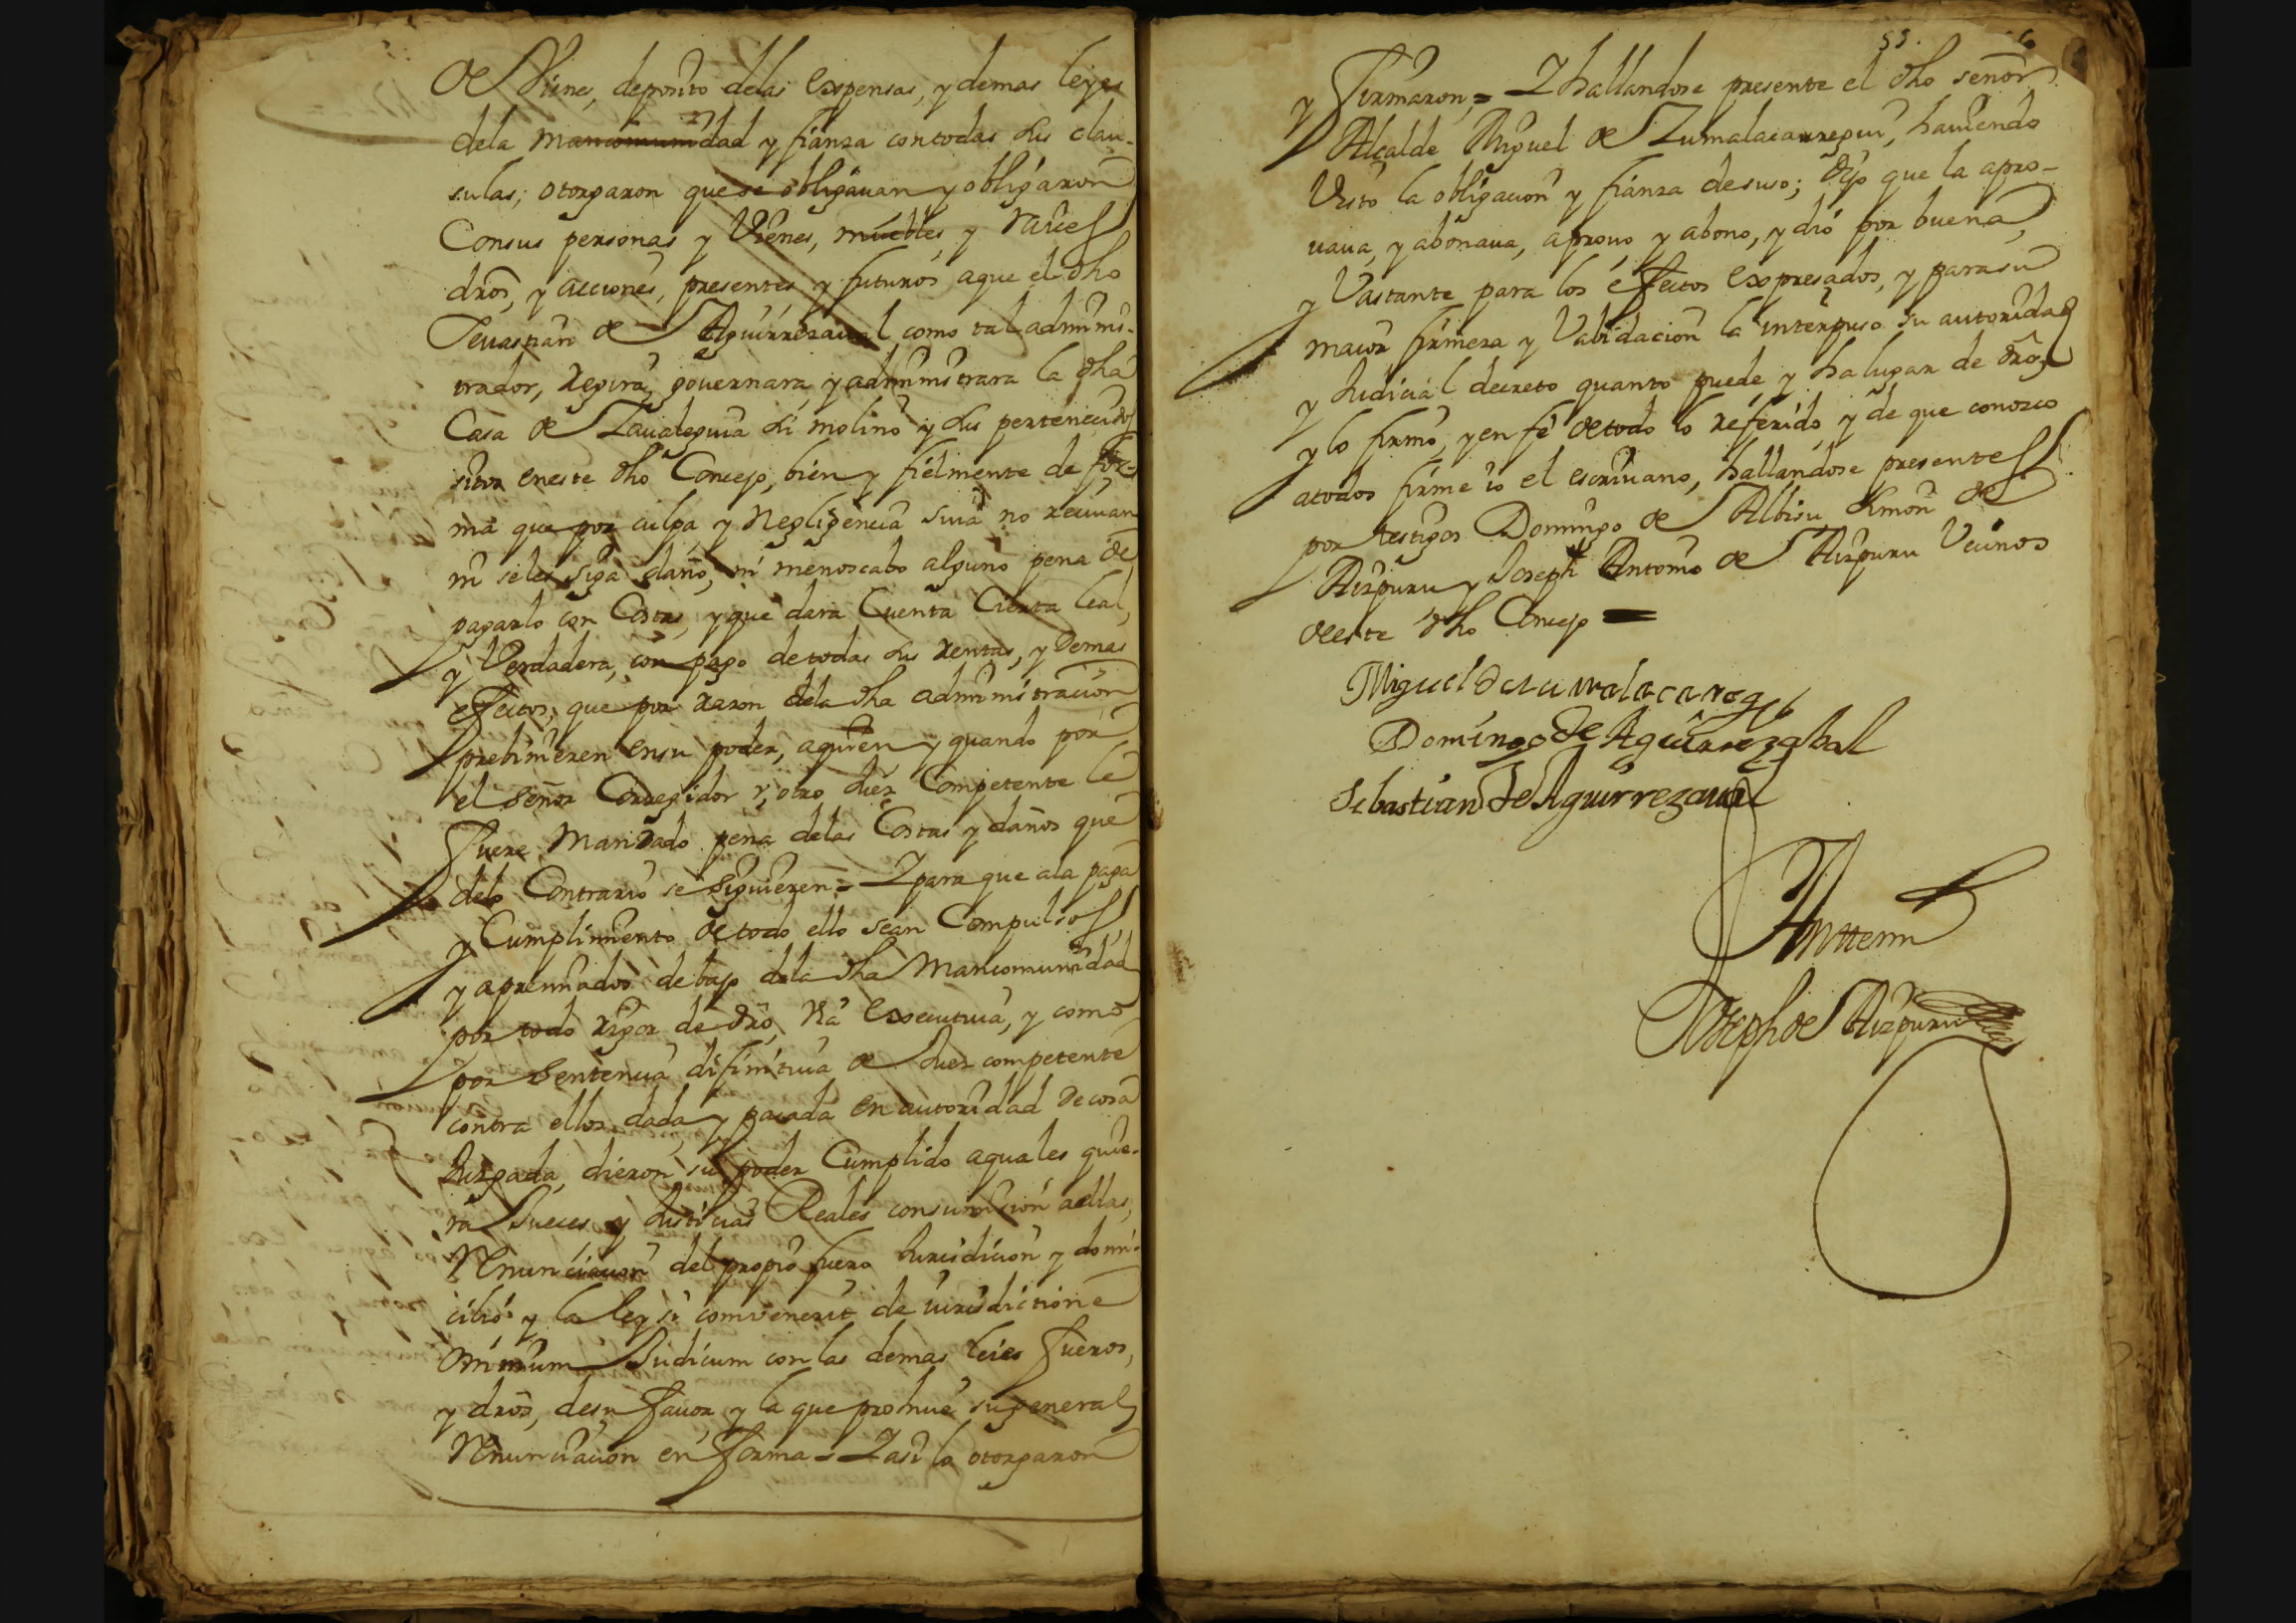 de Vienes, deposito delas expensas, y demas leyes
dela mancomunidad y fianza contodas sus clau-
sulas; otorgaron que se obligauan y obligaron
Consus personas y Vienes, muebles, y raices
dros, y acciones, presentes y futuros aque el dho
Seuastian de Aguirrezaual como tal adminis-
trador, regira, gouernara, y administrara la dha
Casa de Zaualeguia su molino y sus pertenecidos
sitos eneste dho Concejo, bien y fielmente de for-
ma que por culpa, y negligencia suia no reciuan
ni seles siga daño, ni menoscabo alguno pena de
pagarlo con Costas, y que dara Cuenta Cierta leal,
y Verdadera, con pago detodas sus rentas, y demas
efectos, que por razon dela dha administracion
prebinieren ensu poder, aquien y quando por
el señor Corregidor, y, otro Juez Competente le
fuere Mandado pena delas Costas y daños que
delo Contrario se siguieren = Y para que ala paga
y Cumplimiento de todo ello sean Compulsos
y apremiados debajo dela dha Mancomunidad
por todo rigor de dro, via executiua, y como
por sentencia difinitiua de Juez competente
contra ellos dada, y pasada en autoridad de cosa
Juzgada, dieron su poder Cumplido aquales quie-
ra Jueces y Justicias Reales consumision aellas,
Renunciacion del propio fuero Jurisdicion y domi-
cilio y la ley si convenerit de iurisdictione
omnium Judicum con las demas leies fueros,
y dros, desu fauor, y la que prohiue su general
Renunciacion en forma = Y asi lo otorgaron
55. 6
y firmaron = Y hallandose presente el dho señor
Alcalde Miguel de Zumalacarregui, hauiendo
Visto la obligacion y fianza desuso; dijo que la apro-
uaua, y abonaua, aprouo, y abono, y dió por buena,
y Vastante para los efectos expresados, y parasu
maior firmeza y Validacion la interpuso su autoridad
y Judicial decreto quanto puede y ha lugar de dro,
y lo firmó, y en fé detodo lo referido, y de que conozco
atodos firme io el escriuano, hallandose presentes
por testigos Domingo de Albisu, Simon de
Aizpuru y Joseph Antonio de Aizpuru Vecinos
deeste dho Concejo =
Miguel de Zumalacarregui
Domingo de Aguirrezabal
Sebastian de Aguirrezaual
Antemi
Joseph de Aizpuru